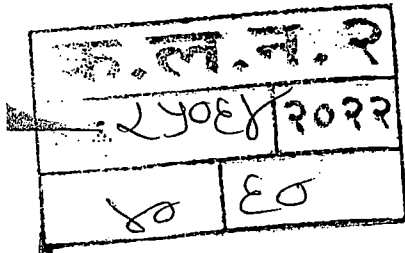 क.ल.न.२
२५०६४ २०२२
४० ६०